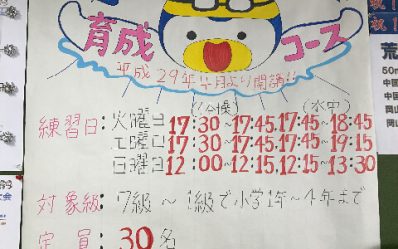 育成コース
平成29年4月より開講!!
(体操) (水中)
練習日:火曜日 17:30~17:45, 17:45~18:45
土曜日 17:30~17:45, 17:45~19:15
日曜日 12:00~12:15, 12:15~13:30
対象級:7級~1級で小学1年~4年まで
定員:30名
祝!
荒
50m
中国
中国
岡山
岡山